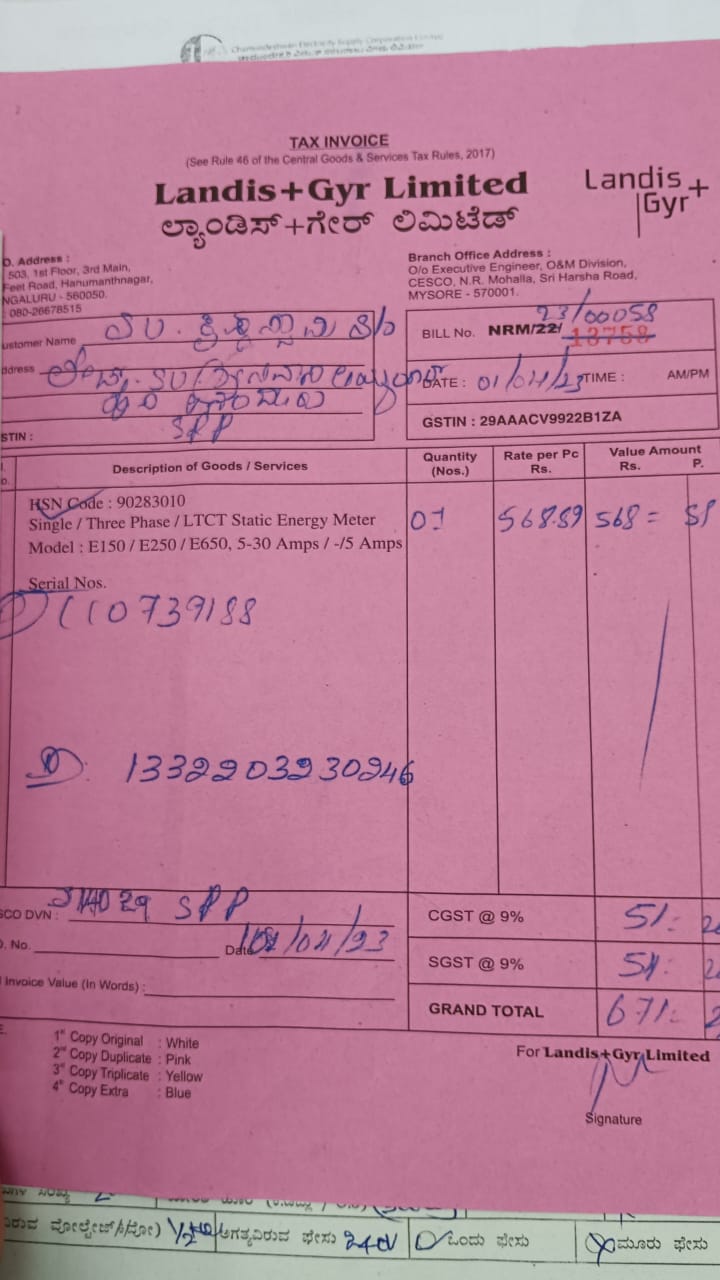 Chamundeshwari Electricity Supply Corporation Limited
TAX INVOICE
(See Rule 46 of the Central Goods & Services Tax Rules, 2017)
Landis+Gyr Limited
ಲ್ಯಾಂಡಿಸ್+ಗೇರ್ ಲಿಮಿಟೆಡ್
Landis
Gyr+
O. Address :
503, 1st Floor, 3rd Main,
Feet Road, Hanumanthnagar,
NGALURU - 560050.
: 080-26678515
Branch Office Address :
O/o Executive Engineer, O&M Division,
CESCO, N.R. Mohalla, Sri Harsha Road,
MYSORE - 570001.
ustomer Name
ddress
SPP
STIN :
23/00058
BILL No. NRM/22/ 13758
DATE : 01/04/23 TIME : AM/PM
GSTIN : 29AAACV9922B1ZA
Description of Goods / Services
Quantity (Nos.)
Rate per Pc Rs.
Value Amount
Rs. P.
HSN Code : 90283010
Single / Three Phase / LTCT Static Energy Meter
Model : E150 / E250 / E650, 5-30 Amps / -/5 Amps
01 568.89 568=
Serial Nos.
110739188
1332203230246
SCO DVN : SPP
. No. Date /04/23
Invoice Value (In Words) :
CGST @ 9% 51
SGST @ 9% 51
GRAND TOTAL 671
1st Copy Original : White
2nd Copy Duplicate : Pink
3rd Copy Triplicate : Yellow
4th Copy Extra : Blue
For Landis+Gyr Limited
Signature
ಅಗತ್ಯವಿರುವ ಫೇಸು 240V ಒಂದು ಫೇಸು ಮೂರು ಫೇಸು